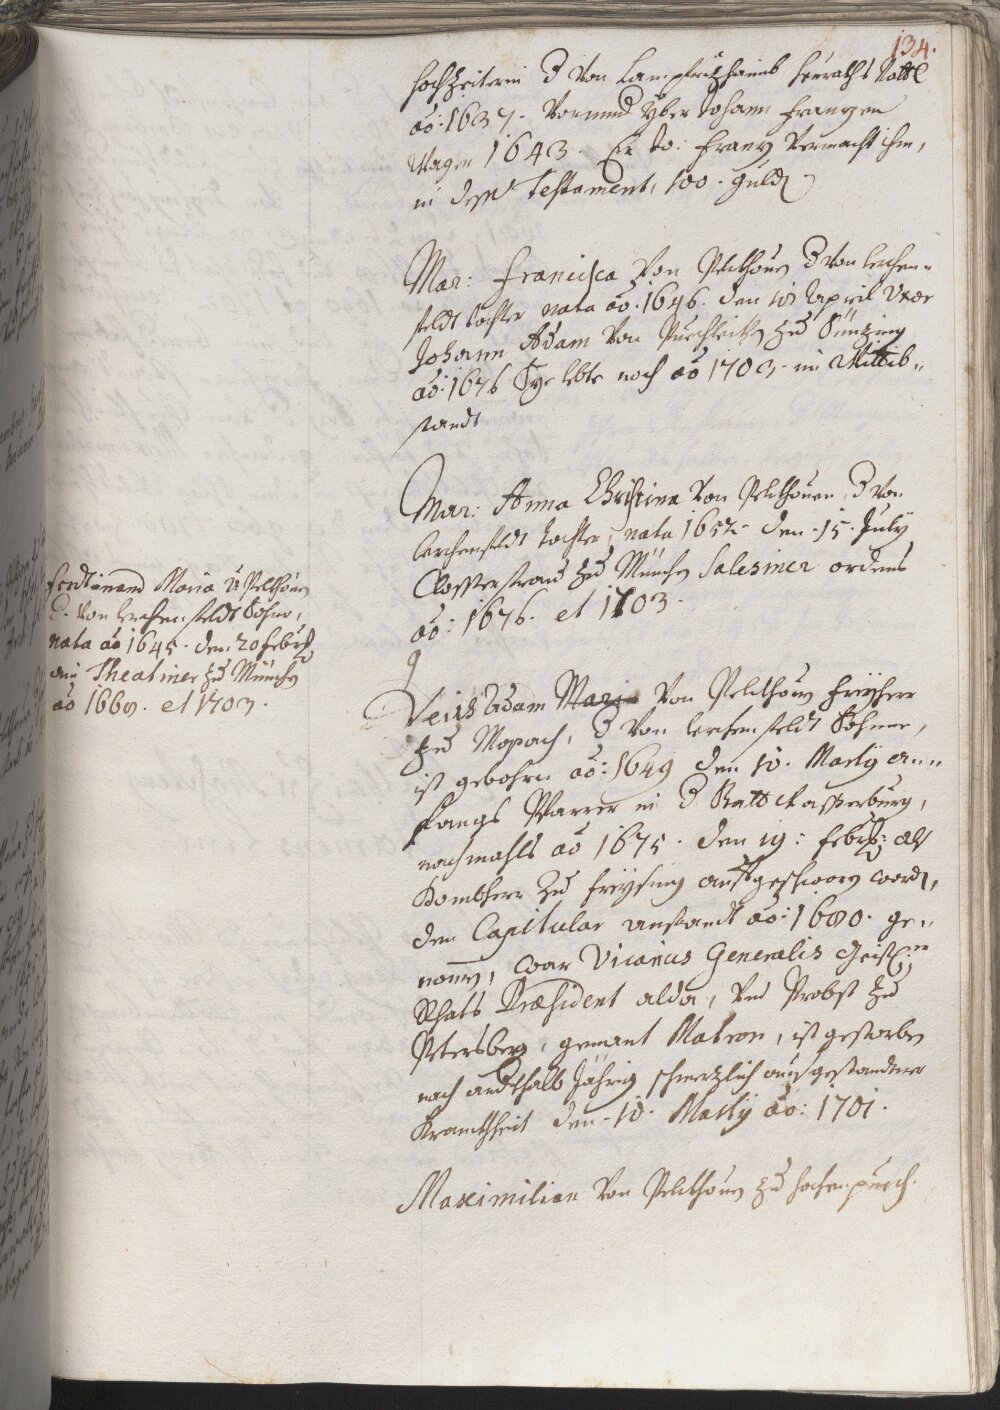 134.
hochzeiterin d von Lampfrizhaimb heuraths Notl
ao: 1637. Vormund yber Johann Franzen
Wager 1643. Er Jo: Franz vermacht ihm,
in dessen Testament, 100. guld.
Mar: Francisca von Pelkhoven d von Lerchen=
feldt tochter nata ao: 1646. den 10 April Uxor
Johann Adam von Puechleith zu Sünzing
ao: 1676 Sye lebte noch ao 1703. im Wittib=
standt
Mar: Anna Christina von Pelkhoven, d von
Lerchenfeldt tochter, nata 1652. den 15. July
Closterfrau zu München Salesiner ordens
ao: 1676. et 1703.
Ferdinand Maria v Pelkhoven
d. von Lerchenfeldt Sohn,
nata ao 1645. den 20 Febr
ain Theatiner zu München
ao 1660. et 1703.
Veith Adam Maria von Pelkhoven Freyherr
zu Mopach, d von Lerchenfeldt Sohne,
ist gebohrn ao: 1649 den 10. Martÿ an=
fangs Pfarrer in d Statt Wasserburg,
nachmahls ao 1675. den 19: Febr: als
Dombherr zu Freysing aufgeschworn word,
den Capitular anstandt ao: 1680. ge=
nomen, war Vicarius Generalis Geistl:
Raths Præsident alda, und Probst zu
Petersberg, genant Matron, ist gestorben
nach andthalb Jährig schmerzlich ausgestandtner
Krankhheit den 10. Martÿ ao: 1701.
Maximilian von Pelkhoven zu hochenpuech.